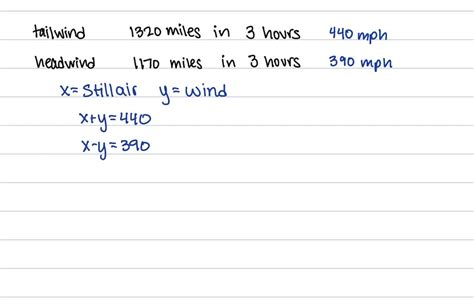 tailwind 1320 miles in 3 hours 440 mph
headwind 1170 miles in 3 hours 390 mph
x=Still air y=wind
x+y=440
x-y=390